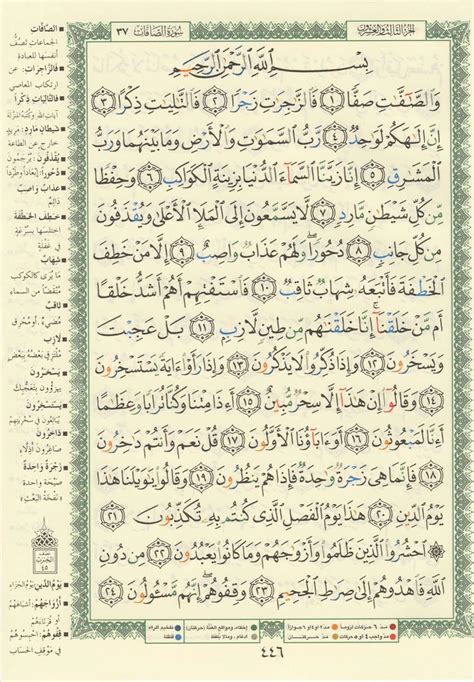 الجزء الثالث والعشرون
سورة الصافات ٣٧
بِسْمِ ٱللَّهِ ٱلرَّحْمَٰنِ ٱلرَّحِيمِ
وَٱلصَّٰٓفَّٰتِ صَفًّا ١ فَٱلزَّٰجِرَٰتِ زَجْرًا ٢ فَٱلتَّٰلِيَٰتِ ذِكْرًا ٣
إِنَّ إِلَٰهَكُمْ لَوَٰحِدٌ ٤ رَّبُّ ٱلسَّمَٰوَٰتِ وَٱلْأَرْضِ وَمَا بَيْنَهُمَا وَرَبُّ
ٱلْمَشَٰرِقِ ٥ إِنَّا زَيَّنَّا ٱلسَّمَآءَ ٱلدُّنْيَا بِزِينَةٍ ٱلْكَوَاكِبِ ٦ وَحِفْظًا
مِّن كُلِّ شَيْطَٰنٍ مَّارِدٍ ٧ لَّا يَسَّمَّعُونَ إِلَى ٱلْمَلَإِ ٱلْأَعْلَىٰ وَيُقْذَفُونَ
مِن كُلِّ جَانِبٍ ٨ دُحُورًا وَلَهُمْ عَذَابٌ وَاصِبٌ ٩ إِلَّا مَنْ خَطِفَ
ٱلْخَطْفَةَ فَأَتْبَعَهُۥ شِهَابٌ ثَاقِبٌ ١٠ فَٱسْتَفْتِهِمْ أَهُمْ أَشَدُّ خَلْقًا
أَم مَّنْ خَلَقْنَآ إِنَّا خَلَقْنَٰهُم مِّن طِينٍ لَّازِبٍ ١١ بَلْ عَجِبْتَ
وَيَسْخَرُونَ ١٢ وَإِذَا ذُكِّرُوا۟ لَا يَذْكُرُونَ ١٣ وَإِذَا رَأَوْا۟ ءَايَةً يَسْتَسْخِرُونَ
١٤ وَقَالُوٓا۟ إِنْ هَٰذَآ إِلَّا سِحْرٌ مُّبِينٌ ١٥ أَءِذَا مِتْنَا وَكُنَّا تُرَابًا وَعِظَٰمًا
أَءِنَّا لَمَبْعُوثُونَ ١٦ أَوَءَابَآؤُنَا ٱلْأَوَّلُونَ ١٧ قُلْ نَعَمْ وَأَنتُمْ دَٰخِرُونَ
١٨ فَإِنَّمَا هِىَ زَجْرَةٌ وَٰحِدَةٌ فَإِذَا هُمْ يَنظُرُونَ ١٩ وَقَالُوا۟ يَٰوَيْلَنَا هَٰذَا
يَوْمُ ٱلدِّينِ ٢٠ هَٰذَا يَوْمُ ٱلْفَصْلِ ٱلَّذِى كُنتُم بِهِۦ تُكَذِّبُونَ ٢١
ٱحْشُرُوا۟ ٱلَّذِينَ ظَلَمُوا۟ وَأَزْوَٰجَهُمْ وَمَا كَانُوا۟ يَعْبُدُونَ ٢٢ مِن دُونِ
ٱللَّهِ فَٱهْدُوهُمْ إِلَىٰ صِرَٰطِ ٱلْجَحِيمِ ٢٣ وَقِفُوهُمْ إِنَّهُم مَّسْـُٔولُونَ ٢٤
الصَّافَّات
الجماعات تصفّ
أنفسها للعبادة
فالزَّاجِرات: عن
ارتكاب المعاصي
فالتَّاليات ذِكْرًا
شيطان مارد:
خارج عن الطاعة
يُقْذَفون:
دُحُورًا:
عذاب واصب
دائم
خَطِف الخطفة
اختلسها بسرعة
في غفلة
شهاب
ما يُرى كالكوكب
منقضًّا من السماء
ثاقب
مضيء
لازب
يسخرون
يهزؤون بتعجبك
يستسخرون
داخرون
صاغرون أذلاء
زجرة واحدة
صيحة واحدة
نفخة البعث
نصف
الحزب
٤٥
يوم الدّين: يوم الجزاء
أزواجهم: أشباههم
أو قرناءهم
قِفُوهم: احبسوهم
في موقف الحساب
مدّ ٦ حركات لزوماً
مدّ ٢ أو ٤ أو ٦ جوازاً
مدّ واجب ٤ أو ٥ حركات
مدّ حركتان
إخفاء، ومواقع الغنّة (حركتان)
ادغام، وما لا يلفظ
تفخيم الراء
قلقلة
٤٤٦